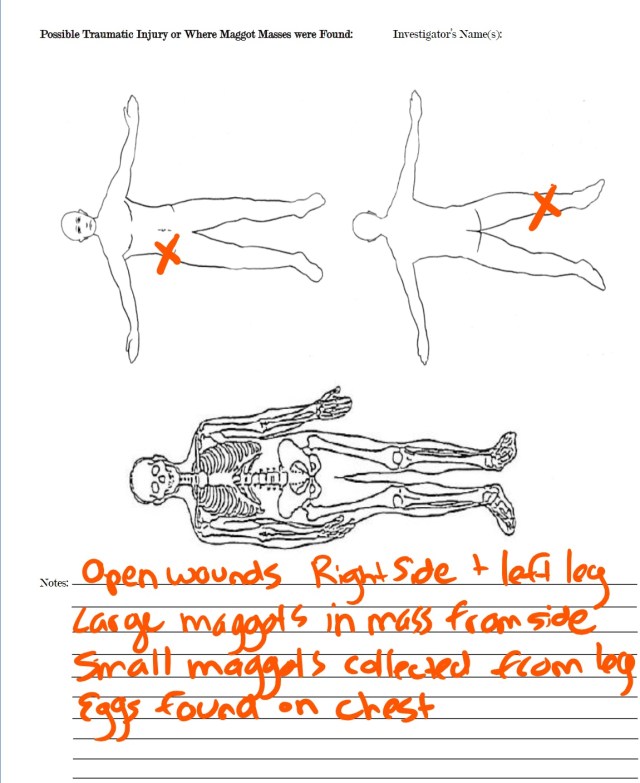 Possible Traumatic Injury or Where Maggot Masses were Found: Investigator's Name(s):
Notes: Open wounds Right Side + left leg
Large maggots in mass from side
Small maggots collected from leg
Eggs found on chest